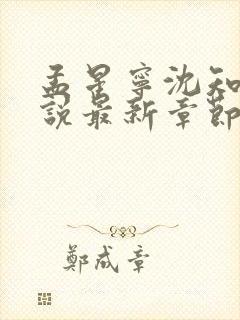 孟星寧沈知
說最新章節
鄭成章